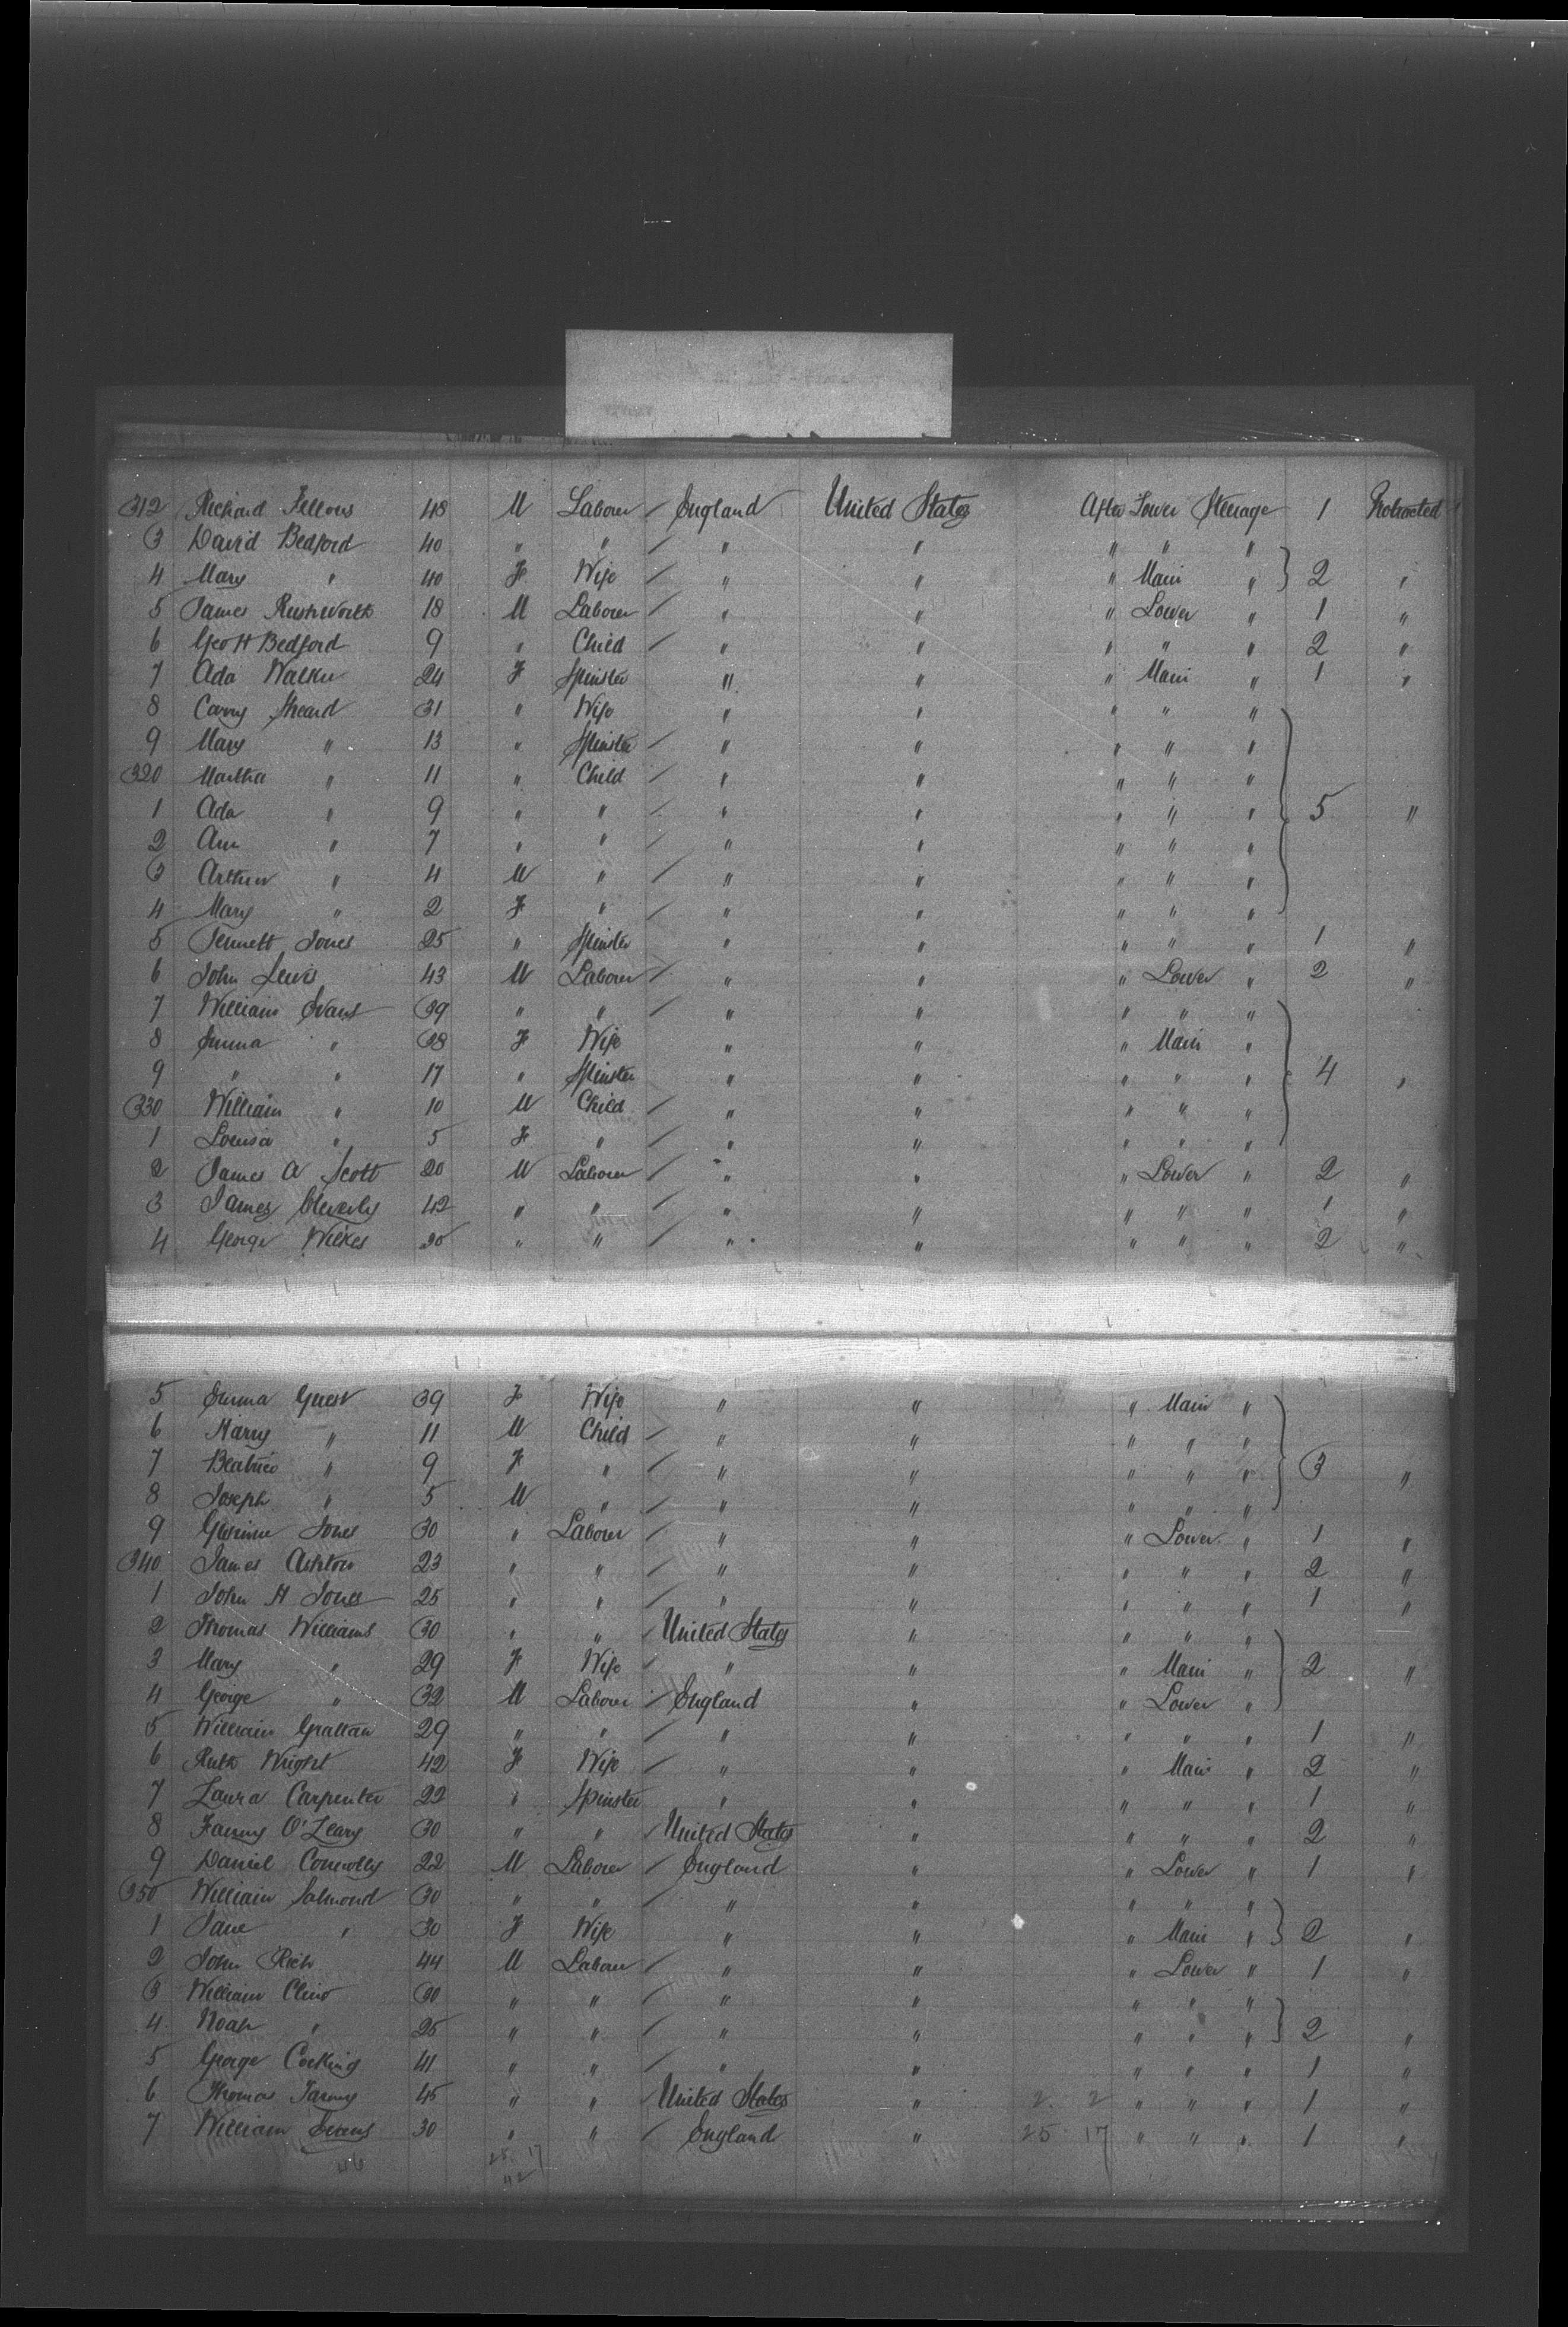 312 Richard Fellows 48 M Laborer / England United States After Lower Steerage 1 Protracted
3 David Bedford 40 " " / " " " " "
4 Mary " 40 F Wife / " " " Main " } 2 "
5 James Rushworth 18 M Laborer / " " " Lower " 1 "
6 Geo H Bedford 9 " Child / " " " " " 2 "
7 Ada Walker 24 F Spinster " " " Main " 1 "
8 Carry Sheard 31 " Wife " " " " "
9 Mary " 13 " Spinster / " " " " "
320 Martha " 11 " Child / " " " " "
1 Ada " 9 " " / " " " " " } 5 "
2 Ann " 7 " " / " " " " "
3 Arthur " 4 M " / " " " " "
4 Mary " 2 F " / " " " " "
5 Jennett Jones 25 " Spinster " " " " " 1 "
6 John Lewis 43 M Laborer / " " " Lower " 2 "
7 William Evans 39 " " / " " " " "
8 Emma " 38 F Wife " " " Main "
9 " " 17 " Spinster " " " " " } 4 "
330 William " 10 M Child / " " " " "
1 Louisa " 5 F " / " " " " "
2 James A Scott 20 M Laborer / " " " Lower " 2 "
3 James Cleverly 42 " " / " " " " " 1 "
4 George Wilkes 20 " " / " " " " " 2 "
5 Emma Guest 39 F Wife " " " Main "
6 Harry " 11 M Child / " " " " "
7 Beatrice " 9 F " / " " " " " } 3 "
8 Joseph " 5 M " / " " " " "
9 Jones 30 " Laborer / " " " Lower " 1 "
340 James Ashton 23 " " / " " " " " 2 "
1 John H Jones 25 " " / " " " " " 1 "
2 Thomas Williams 30 " " / United States " " " "
3 Mary " 29 F Wife / " " " Main " } 2 "
4 George " 32 M Laborer / England " " Lower "
5 William Grattan 29 " " / " " " " " 1 "
6 Ruth Wright 42 F Wife / " " " Main " 2 "
7 Laura Carpenter 22 " Spinster " " " " " 1 "
8 Fanny O'Leary 30 " " / United States " " " " 2 "
9 Daniel Connolly 22 M Laborer / England " " Lower " 1 "
350 William Salmond 30 " " / " " " " "
1 Jane " 30 F Wife " " " Main " } 2 "
2 John Rich 44 M Laborer / " " " Lower " 1 "
3 William Cline 30 " " / " " " " "
4 Noah " 25 " " / " " " " " } 2 "
5 George Cocking 41 " " / " " " " " 1 "
6 Thomas 45 " " United States " 2 2 " " " 1 "
7 William 30 " " / England " 25 17 " " " 1 "
25 17
42